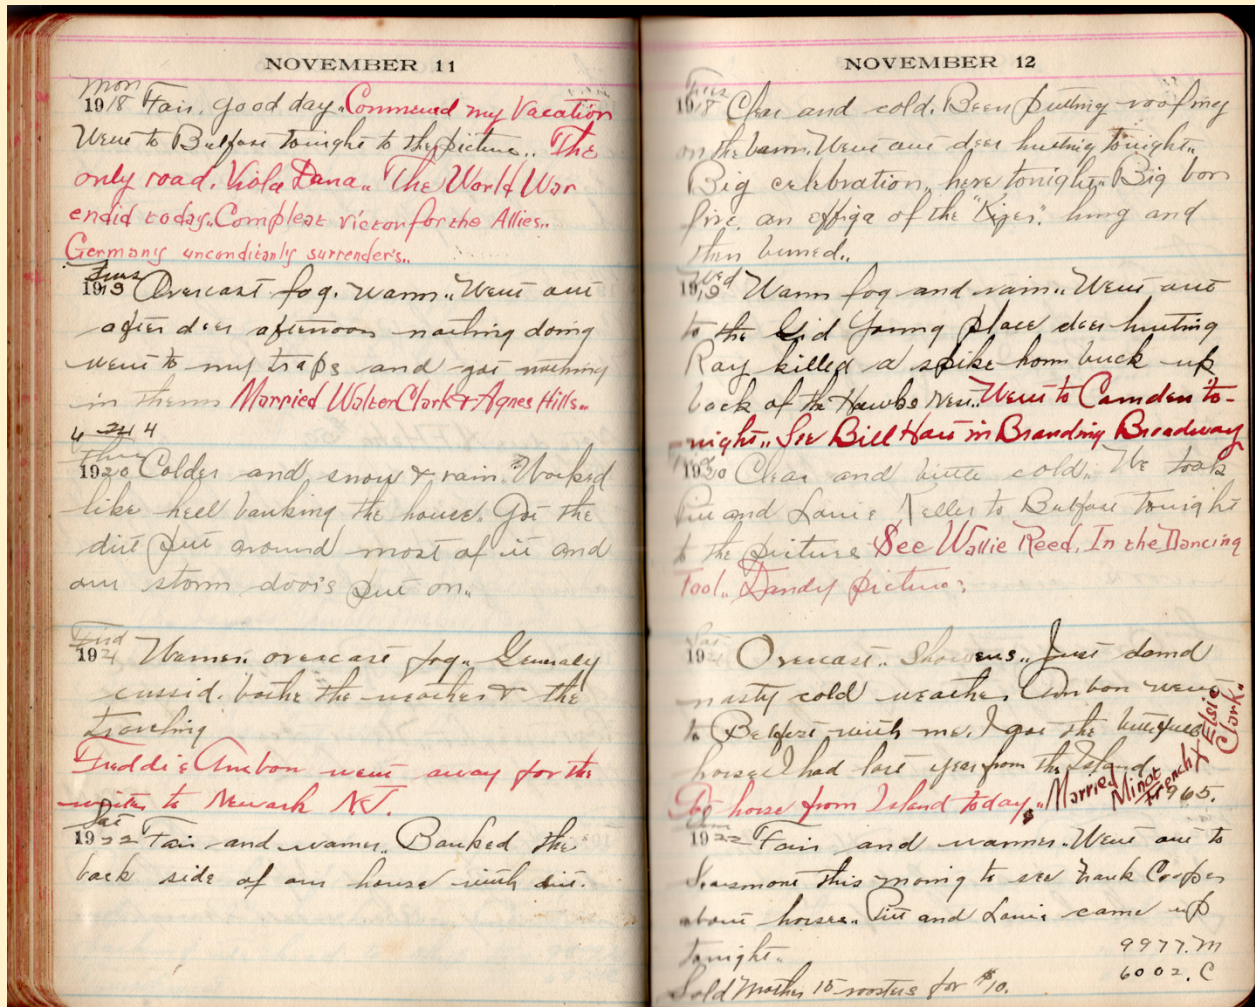 NOVEMBER 11
Mon
1918 Fair. good day. Commenced my Vacation
Went to Belfast tonight to the picture.. The
only road. Viola Dana.. The World War
endid today. Compleat victor for the Allies..
Germany unconditanly surrender's..
Tues
1919 Overcast fog. Warm.. Went out
after deer afternoon nothing doing
went to my traps and got nothing
in them Married Walter Clark & Agnes Hills..
Thur
1920 Colder and snow & rain. Worked
like hell banking the house. Got the
dirt put around most of it and
our storm doors put on..
Frid
1921 Warmer. overcast fog.. Generaly
cussid. bothe the weather & the
traveling
Freddie Ambon went away for the
winter to Newark N.J.
Sat
1922 Fair and warmer.. Banked the
back side of our house with dirt.
NOVEMBER 12
Tues
1918 Clear and cold. Been putting roofing
on the barn. Went out deer hunting tonight..
Big celebration, here tonight. Big bon
fire. an effiga of the "Kiser". hung and
then burned..
Wed
1919 Warm fog and rain.. Went out
to the Gid Young place deer hunting
Ray killed a spike horn buck up
back of the Hawbs Nest.. Went to Camden to-
night.. See Bill Hart in Branding Broadway
1920 Clear and little cold.. We took
and Louie Keller to Belfast tonight
to the picture See Wallie Reed. In the Dancing
Fool.. Dandy picture:
Sat
1921 Overcast.. Showers.. Just damd
nasty cold weather Ambon went
to Belfast with me. I got the
horse I had last year from the Island
horse from Island today. Married Minot French X Elsie Clark.
965.
1922 Fair and warmer. Went out to
Searsmont this morning to see Frank Cooper
about horse.. and Louie came up
tonight..
9977.M
6002.C
Sold Mother 15 roosters for $10.